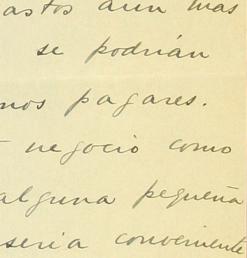 astos aún mas
se podrían
nos pagares.
negocio como
alguna pequeña
seria conveniente